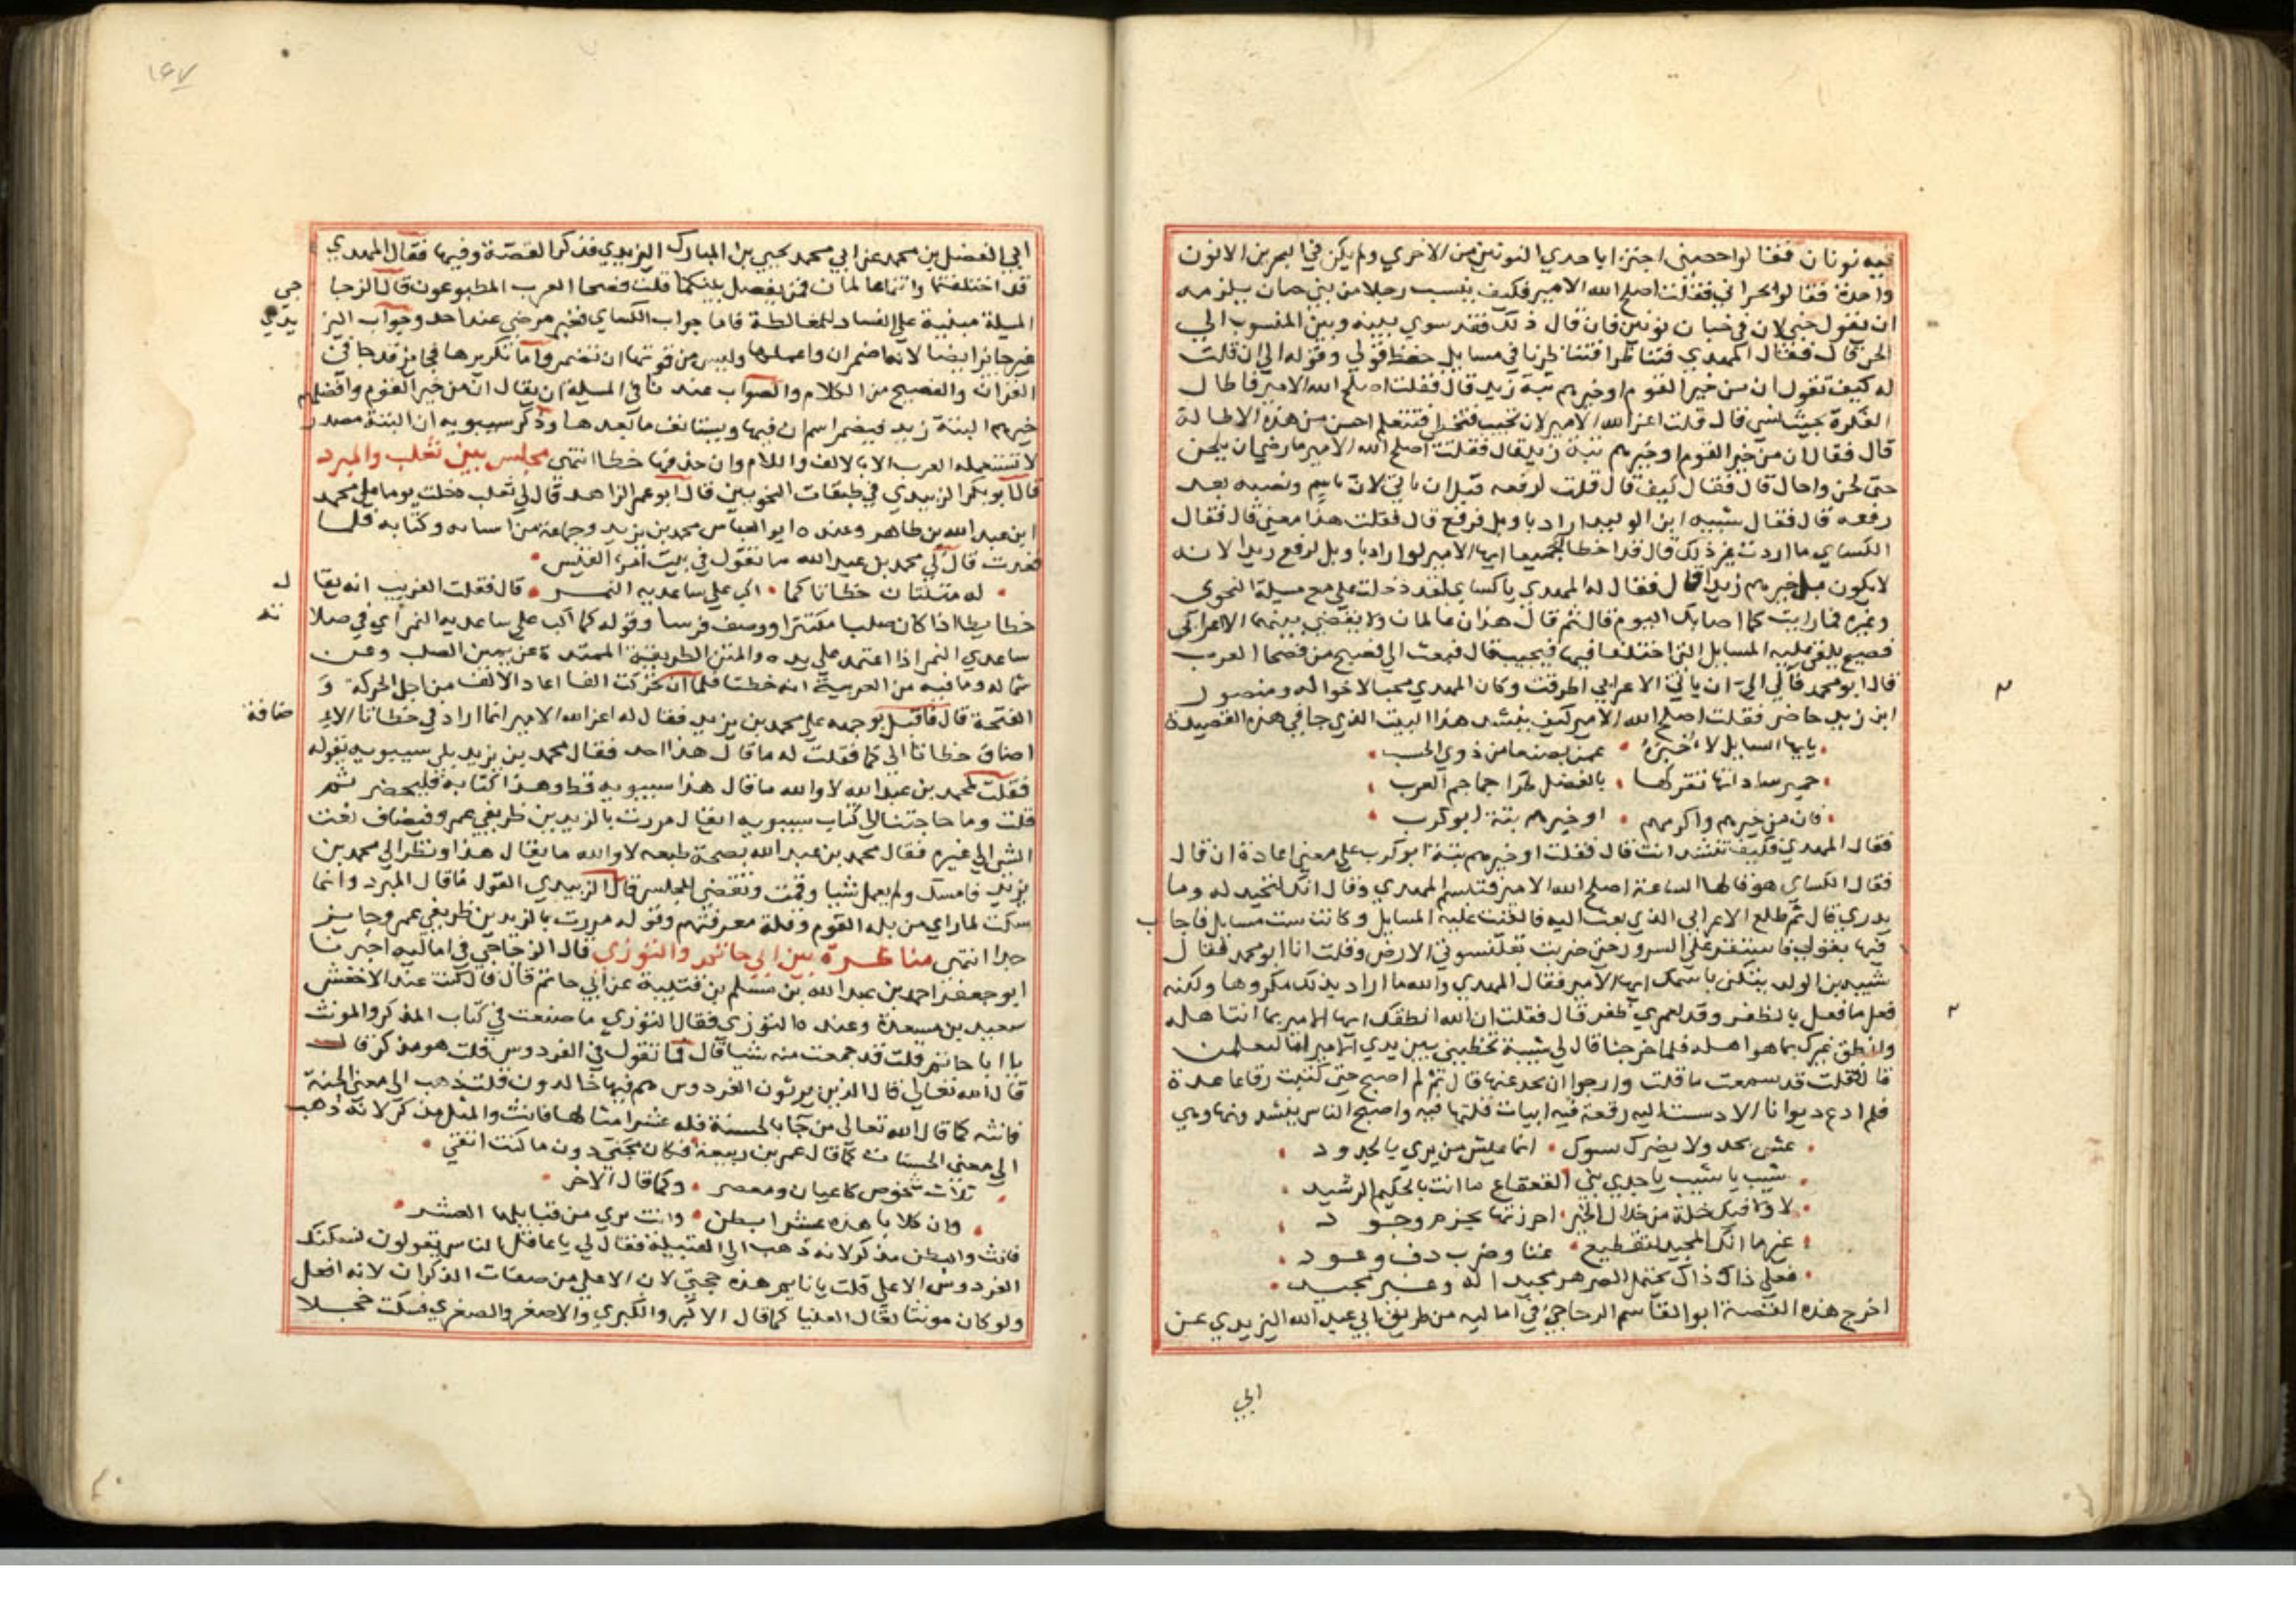 فيه نونان فقالوا حصني اجتزا باحدي النونين من الاخري ولم يكن في البحرين الا نون
واحدة فقالوا بحراني فقلت اصلح الله الامير فكيف ينسب رجلا من بني جنان يلزمه
ان يقول جني لان في جنان نونين فان قال ذلك فقد سوي بينه وبين المنسوب الي
الجن قال فقال المهدي فتناظرا فتناظرنا في مسايل حفظ قولي وقوله الي ان قلت
له كيف تقول ان من خير القوم او خيرهم بتة زيد قال فقلت اصلح الله الامير فاطال
الفكرة بحيث قال قلت اعز الله الامير لان تجيب فتخطي فتتعلم احسن من هذه الاطالة
قال فقال ان من خير القوم او خيرهم بتة زيدا قال فقلت اصلح الله الامير ما رضي ان يلحن
حتي لحن واحال قال فقال كيف قال قلت لرفعه قبل ان ياتي لان باسم ونصبه بعد
رفعه قال فقال شيبه ابن الوليد اراد باو بل فرفع قال فقلت هذا معني قال فقال
الكساي ما اردت غير ذلك قال قد اخطا جميعا ايها الامير لو اراد باو بل لرفع زيدا لانه
لا يكون بل خيرهم زيدا قال فقال له المهدي يا كساي لقد دخلت علي مع مسلمة النحوي
وغيره فما رايت كما اصابك اليوم قال ثم قال هذان عالمان ولا يقضي بينهما الا اعرابي
فصيح يلقي عليه المسايل التي اختلفا فيها فيجيب قال فبعث الي فصيح من فصحا العرب
قال ابو محمد قال لي الي ان ياتي الاعرابي اطرقت وكان المهدي محبا لاخواله ومنصور
ابن زيد حاضر فقلت اصلح الله الامير كيف ينشد هذا البيت الذي جا في هذه القصيدة
يايها السايل لاخبره • عمن بصنعا من ذوي الحسب
حمير ساداتها تقر لها • بالفضل طرا جحاجح العرب
فان من خيرهم واكرمهم • او خيرهم بتة ابو كرب
فقال المهدي فكيف تنشد انت قال فقلت او خيرهم بتة ابو كرب علي معني اعادة ان قال
فقال الكساي هو قالها الساعة اصلح الله الامير فتبسم المهدي وقال انك لتشهد له وما
يدري قال ثم طلع الاعرابي الذي بعث اليه فالقيت عليه المسايل وكانت ست مسايل فاجاب
فيها بقولي فاستفزني السرور حتي ضربت بقلنسوتي الارض وقلت انا ابو محمد فقال
شيبه بن الوليد يتكني باسمك ايها الامير فقال المهدي والله ما اراد بذلك مكروها ولكنه
فعل ما فعل بالظفر وقد لعمري ظفر قال فقلت ان الله انطقك ايها الامير بما انت اهله
وانطق غيرك بما هو اهله فلما خرجنا قال لي شيبة تخطيني بين يدي الامير اما لتعلمن
قال قلت قد سمعت ما قلت وارجوا ان تحمد غبها قال ثم لم اصبح حتي كتبت رقاعا عدة
فلم ادع ديوانا الا دسست اليه رقعة فيه ابيات قلتها فيه واصبح الناس ينشدونها وهي
عش بجد ولا يضرك نوك • انما عيش من يري بالجدود
شيب يا شيب يا جدي بني القعقاع ما انت بالحليم الرشيد
لا ولا فيك خلة من خلال الخير • احرزتها بحزم وجود
غير ما انك المجيد لتقطيع • غنا وضرب دف وعود
فعلي ذاك ذاك يحتمل الدهر مجيدا له وغير مجيد
اخرج هذه القصة ابو القاسم الزجاجي في اماليه من طريق ابي عبد الله اليزيدي عن
ابي
١٤٧
ابي الفضل بن محمد عن ابي محمد يحيي بن المبارك اليزيدي فذكر القصة وفيها فقال المهدي
قد اختلفتما وانتما عالمان فمن يفصل بينكما قلت فصحا العرب المطبوعون قال الزجا جي
المسيلة مبنية علي الفساد للمغالطة فاما جواب الكساي فغير مرضي عند احد وجواب اليز يدي
غير جايز ايضا لانه اضمر ان واعملها وليس من قوتها ان تضمر واما تكريرها فجايز قد جا في
القران والفصيح من الكلام والصواب عندنا في المسيلة ان يقال ان من خير القوم وافضلهم
خيرهم البتة زيد فيضمر اسم ان فيها ويستانف ما بعدها وذكر سيبويه ان البتة مصدر
لا تستعمله العرب الا بالالف واللام وان حذفها خطا انتهي مجلس بين ثعلب والمبرد
قال ابو بكر الزبيدي في طبقات النحويين قال ابو عمر الزاهد قال لي ثعلب دخلت يوما علي محمد
ابن عبد الله بن طاهر وعنده ابو العباس محمد بن يزيد وجماعة من اسبابه وكتابه فلما
قعدت قال لي محمد بن عبد الله ما تقول في بيت امرء القيس •
له متنتان خظاتا كما • اكب علي ساعديه النمر • قال فقلت الغريب انه يقا ل
خظا بظا اذا كان صلبا مكتنزا ووصف فرسا وقوله كما اكب علي ساعديه النمر اي في صلا بته
ساعدي النمر اذا اعتمد علي يده والمتن الطريقة الممتدة عن يمين الصلب وعن
شماله وما فيه من العربية انه خظتا فلما ان تحركت التا اعاد الالف من اجل الحركة و
الفتحة قال فاقبل بوجهه علي محمد بن يزيد فقال له اعز الله الامير انما اراد في خظاتا الا ضافة
اضاف خظاتا الي كما فقلت له ما قال هذا احد فقال محمد بن يزيد بلي سيبويه يقوله
فقلت لمحمد بن عبد الله لا والله ما قال هذا سيبويه قط وهذا كتابه فليحضر ثم
قلت وما حاجتنا الي كتاب سيبويه ايقال مررت بالزيدين ظريفي عمرو فيضاف نعت
الشي الي غيره فقال محمد بن عبد الله بصحة طبعه لا والله ما يقال هذا ونظر الي محمد بن
يزيد فامسك ولم يعمل شيا وقمت وتقضي المجلس قال الزبيدي القول ما قال المبرد وانما
سكت لما راي من بله القوم وقلة معرفتهم وقوله مررت بالزيدين ظريفي عمرو جايز
جدا انتهي مناظرة بين ابي حاتم والتوزي قال الزجاجي في اماليه اخبرنا
ابو جعفر احمد بن عبد الله بن مسلم بن قتيبة عن ابي حاتم قال قال كنت عند الاخفش
سعيد بن مسعدة وعنده التوزي فقال التوزي ما صنعت في كتاب المذكر والمونث
يا ابا حاتم قلت قد جمعت منه شيا قال فما تقول في الفردوس قلت هو مذكر قال
قال الله تعالي قال الذين يرثون الفردوس هم فيها خالدون قلت ذهب الي معني الجنة
فانثه كما قال الله تعالي من جا بالحسنة فله عشر امثالها فانث والمثل مذكر لانه ذهب
الي معني الحسنات كما قال عمر بن ربيعة فكان مجني دون ما كنت اتقي •
ثلاث شخوص كاعبان ومعصر • وكما قال الاخر •
وان كلابا هذه عشر ابطن • وانت بري من قبايلها العشر •
فانث والبطن مذكر لانه ذهب الي القبيلة فقال لي يا غافل الناس يقولون نسالك
الفردوس الاعلي قلت يا نايم هذه حجتي لان الاعلي من صفات الذكران لانه افعل
ولو كان مونثا لقال العليا كما قال الاكبر والكبري والاصغر والصغري فسكت خجلا